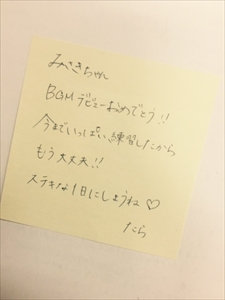 みさきちゃん
BGMデビューおめでとう!!
今までいっぱい練習したから
もう大丈夫!!
ステキな1日にしようね♡
たら